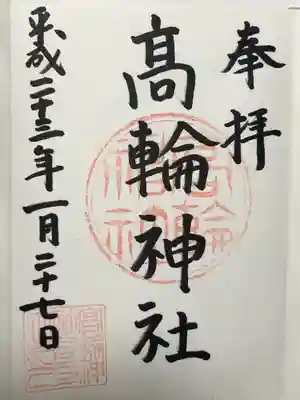 奉拝
髙輪神社
平成二十三年一月二十七日